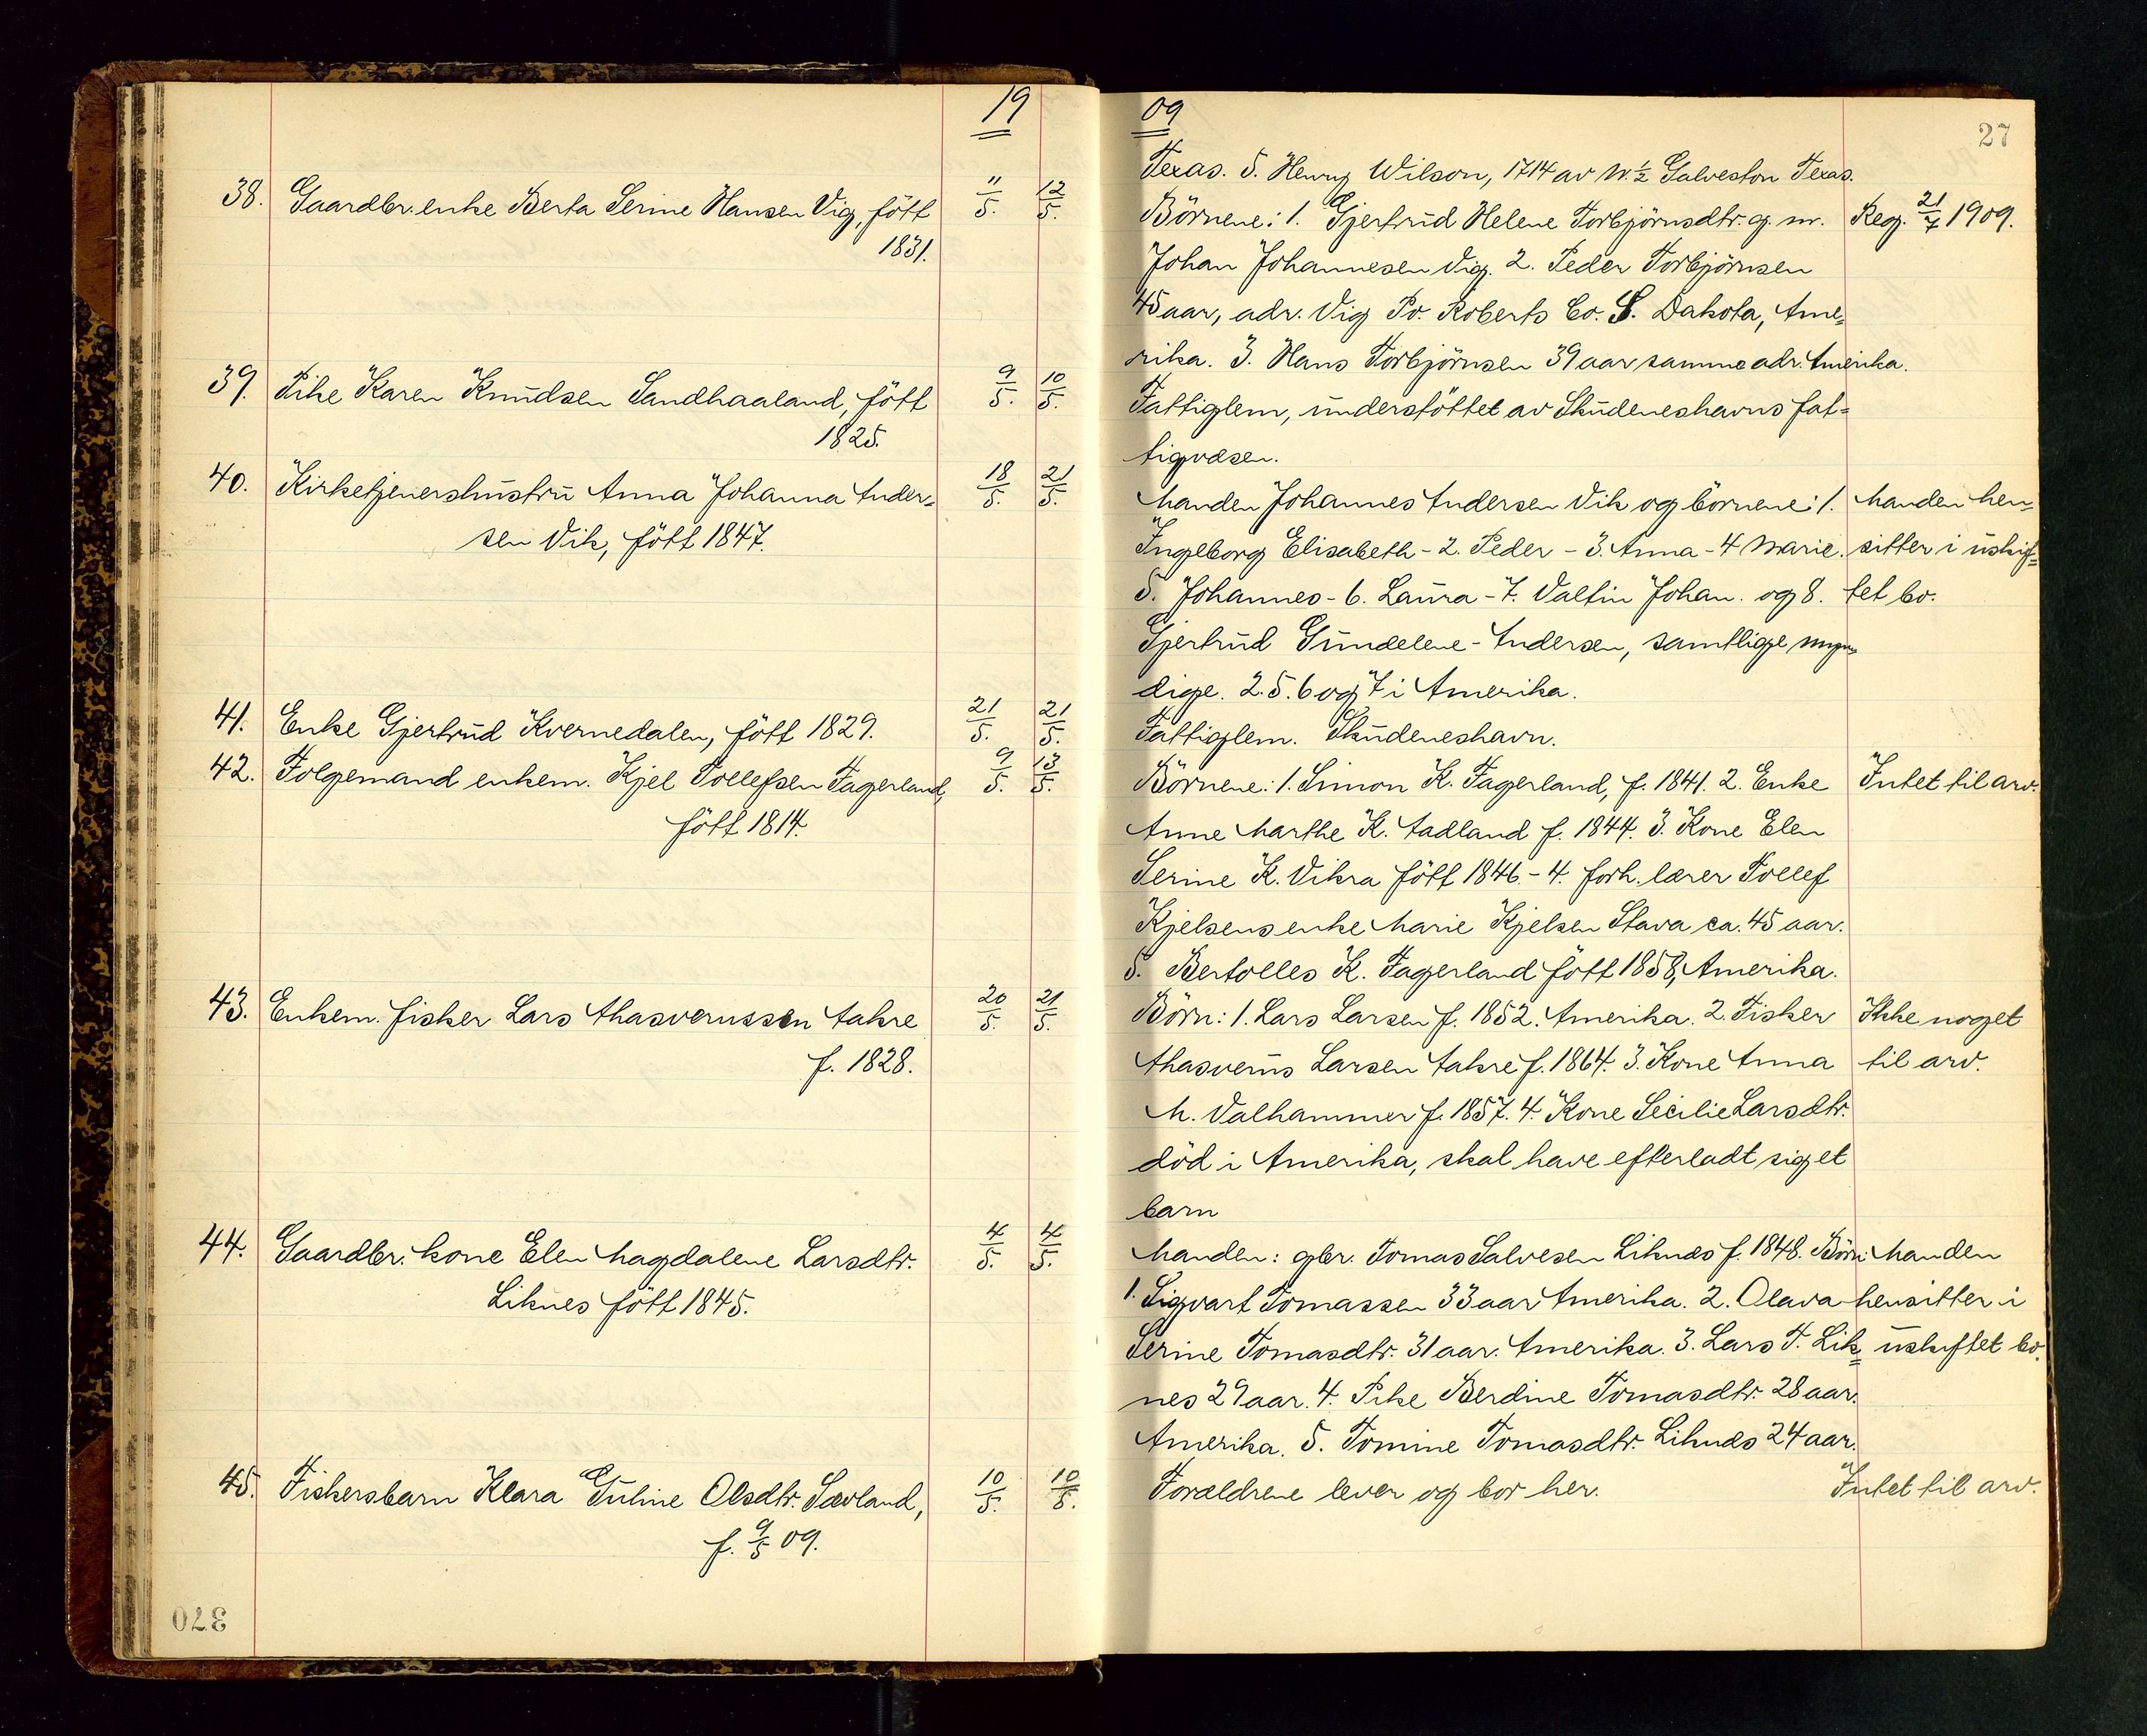 19
38. Gaardbr. enke Berta Serine Hansen Vig, fött 11/5. 12/5.
1831.
39. Pike Karen Knudsen Sandhaaland, fött 9/5. 10/5.
1825.
40. Kirketjenershustru Anna Johanna Ander- 18/5. 21/5.
sen Vik, fött 1847.
41. Enke Gjertrud Kvernedalen, fött 1829. 21/5. 21/5.
42. Folgemand enkem. Kjel Tollefsen Fagerland, 9/5. 13/5.
fött 1814.
43. Enkem. fisker Lars Ahasverussen Aakre 20/5. 21/5.
f. 1828.
44. Gaardbr. kone Elen Magdalene Larsdtr. 4/5. 4/5.
Liknes fött 1845.
45. Fiskersbarn Klara Guline Olsdtr. Sævland, 10/5. 10/5.
f. 9/5 09.
370
09
27
Texas. 5. Henry Wilson, 1714 av N. ½ Galveston Texas.
Börnene: 1. Gjertrud Helene Torbjörnsdtr. g. m. Reg. 21/7 1909.
Johan Johannesen Vig. 2. Peder Torbjörnsen
45 aar, adr. Vig Po. Roberts Co. S. Dakota, Ame-
rika. 3. Hans Torbjörnsen 39 aar samme adr. Amerika.
Fattiglem, understöttet av Skudeneshavns fat-
tigvæsen.
Manden Johannes Andersen Vik og börnene: 1. Manden hen-
Ingeborg Elisabeth - 2. Peder - 3. Anna - 4 Marie. sitter i uskif-
5. Johannes - 6. Laura - 7. Valtin Johan. og 8. tet bo.
Gjertrud Gundelene - Andersen, samtlige myn-
dige. 2. 5. 6 og 7 i Amerika.
Fattiglem. Skudeneshavn.
Börnene: 1. Simon K. Fagerland, f. 1841. 2. Enke Intet til arv.
Anne Marthe K. Aadland f. 1844. 3. Kone Elen
Serine K. Vikra fött 1846. - 4. forh. lærer Tollef
Kjelsens enke Marie Kjelsen Stava ca. 45 aar.
5. Bertolles K. Fagerland fött 1858, Amerika.
Börn: 1. Lars Larsen f. 1852. Amerika. 2. Fisker Ikke noget
Ahasverus Larsen Aakre f. 1864. 3. Kone Anna til arv.
M. Valhammer f. 1857. 4. Kone Secilie Larsdtr.
död i Amerika, skal have efterladt sig et
barn
Manden: gbr. Tomas Salvesen Liknes f. 1848. Börn: Manden
1. Sigvart Tomassen 33 aar Amerika. 2. Olava hensitter i
Serine Tomasdtr. 31 aar. Amerika. 3. Lars T. Lik- uskiftet bo.
nes 29 aar. 4. Pike Berdine Tomasdtr. 28 aar.
Amerika. 5. Tomine Tomasdtr. Liknes 24 aar.
Forældrene lever og bor her. Intet til arv.